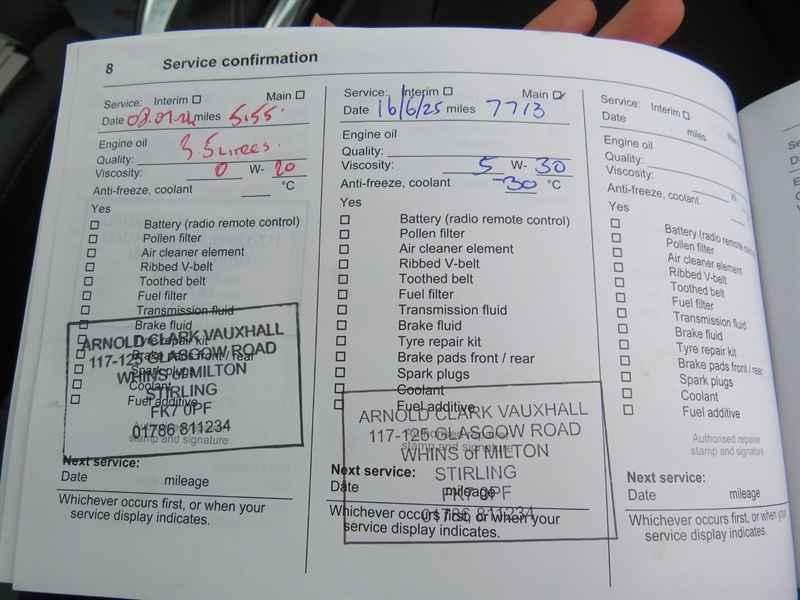 8 Service confirmation
Service: Interim Main
Date 03.01.24 miles 5,155.
Engine oil 3.5 LITRES.
Quality:
Viscosity: 0 W- 20
Anti-freeze, coolant °C
Yes
Battery (radio remote control)
Pollen filter
Air cleaner element
Ribbed V-belt
Toothed belt
Fuel filter
Transmission fluid
Brake fluid
Tyre repair kit
Brake pads front / rear
Spark plugs
Coolant
Fuel additive
ARNOLD CLARK VAUXHALL
117-125 GLASGOW ROAD
WHINS of MILTON
STIRLING
FK7 0PF
01786 811234
Authorised repairer
stamp and signature
Next service:
Date mileage
Whichever occurs first, or when your
service display indicates.
Service: Interim Main
Date 16/6/25 miles 7713
Engine oil
Quality:
Viscosity: 5 W- 30
Anti-freeze, coolant -30 °C
Yes
Battery (radio remote control)
Pollen filter
Air cleaner element
Ribbed V-belt
Toothed belt
Fuel filter
Transmission fluid
Brake fluid
Tyre repair kit
Brake pads front / rear
Spark plugs
Coolant
Fuel additive
ARNOLD CLARK VAUXHALL
117-125 GLASGOW ROAD
WHINS of MILTON
STIRLING
FK7 0PF
01786 811234
Authorised repairer
stamp and signature
Next service:
Date mileage
Whichever occurs first, or when your
service display indicates.
Service: Interim
Date miles
Engine oil
Quality:
Viscosity: W-
Anti-freeze, coolant
Yes
Battery (radio remote control)
Pollen filter
Air cleaner element
Ribbed V-belt
Toothed belt
Fuel filter
Transmission fluid
Brake fluid
Tyre repair kit
Brake pads front / rear
Spark plugs
Coolant
Fuel additive
Authorised repairer
stamp and signature
Next service:
Date mileage
Whichever occurs first, or when your
service display indicates.